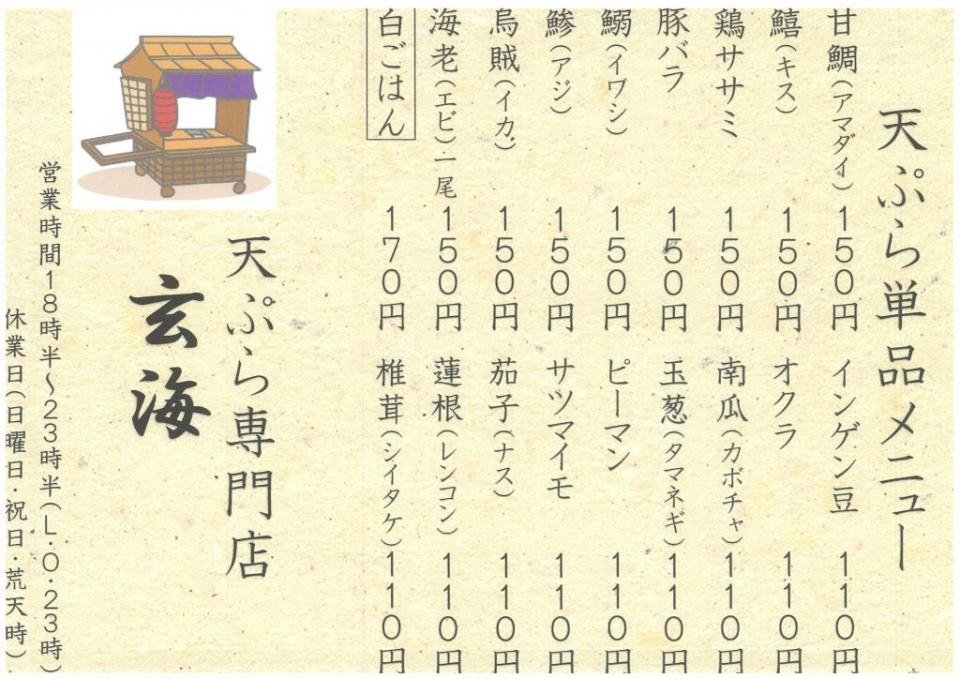 天ぷら単品メニュー
甘鯛(アマダイ)150円
鱚(キス)150円
鶏ササミ150円
豚バラ150円
鰯(イワシ)150円
鯵(アジ)150円
烏賊(イカ)150円
海老(エビ)一尾150円
白ごはん170円
インゲン豆110円
オクラ110円
南瓜(カボチャ)110円
玉葱(タマネギ)110円
ピーマン110円
サツマイモ110円
茄子(ナス)110円
蓮根(レンコン)110円
椎茸(シイタケ)110円
天ぷら専門店
玄海
営業時間18時半~23時半(L・O・23時)
休業日(日曜日・祝日・荒天時)